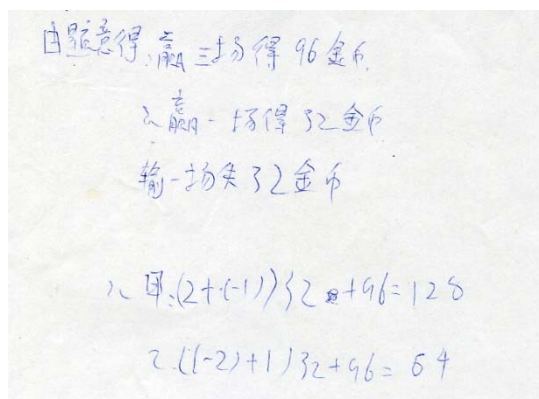 由题意得:赢三场得96金币
∴赢一场得32金币
输一场失32金币
∴甲:(2+(-1))32+96=128
乙.((-2)+1)32+96=64